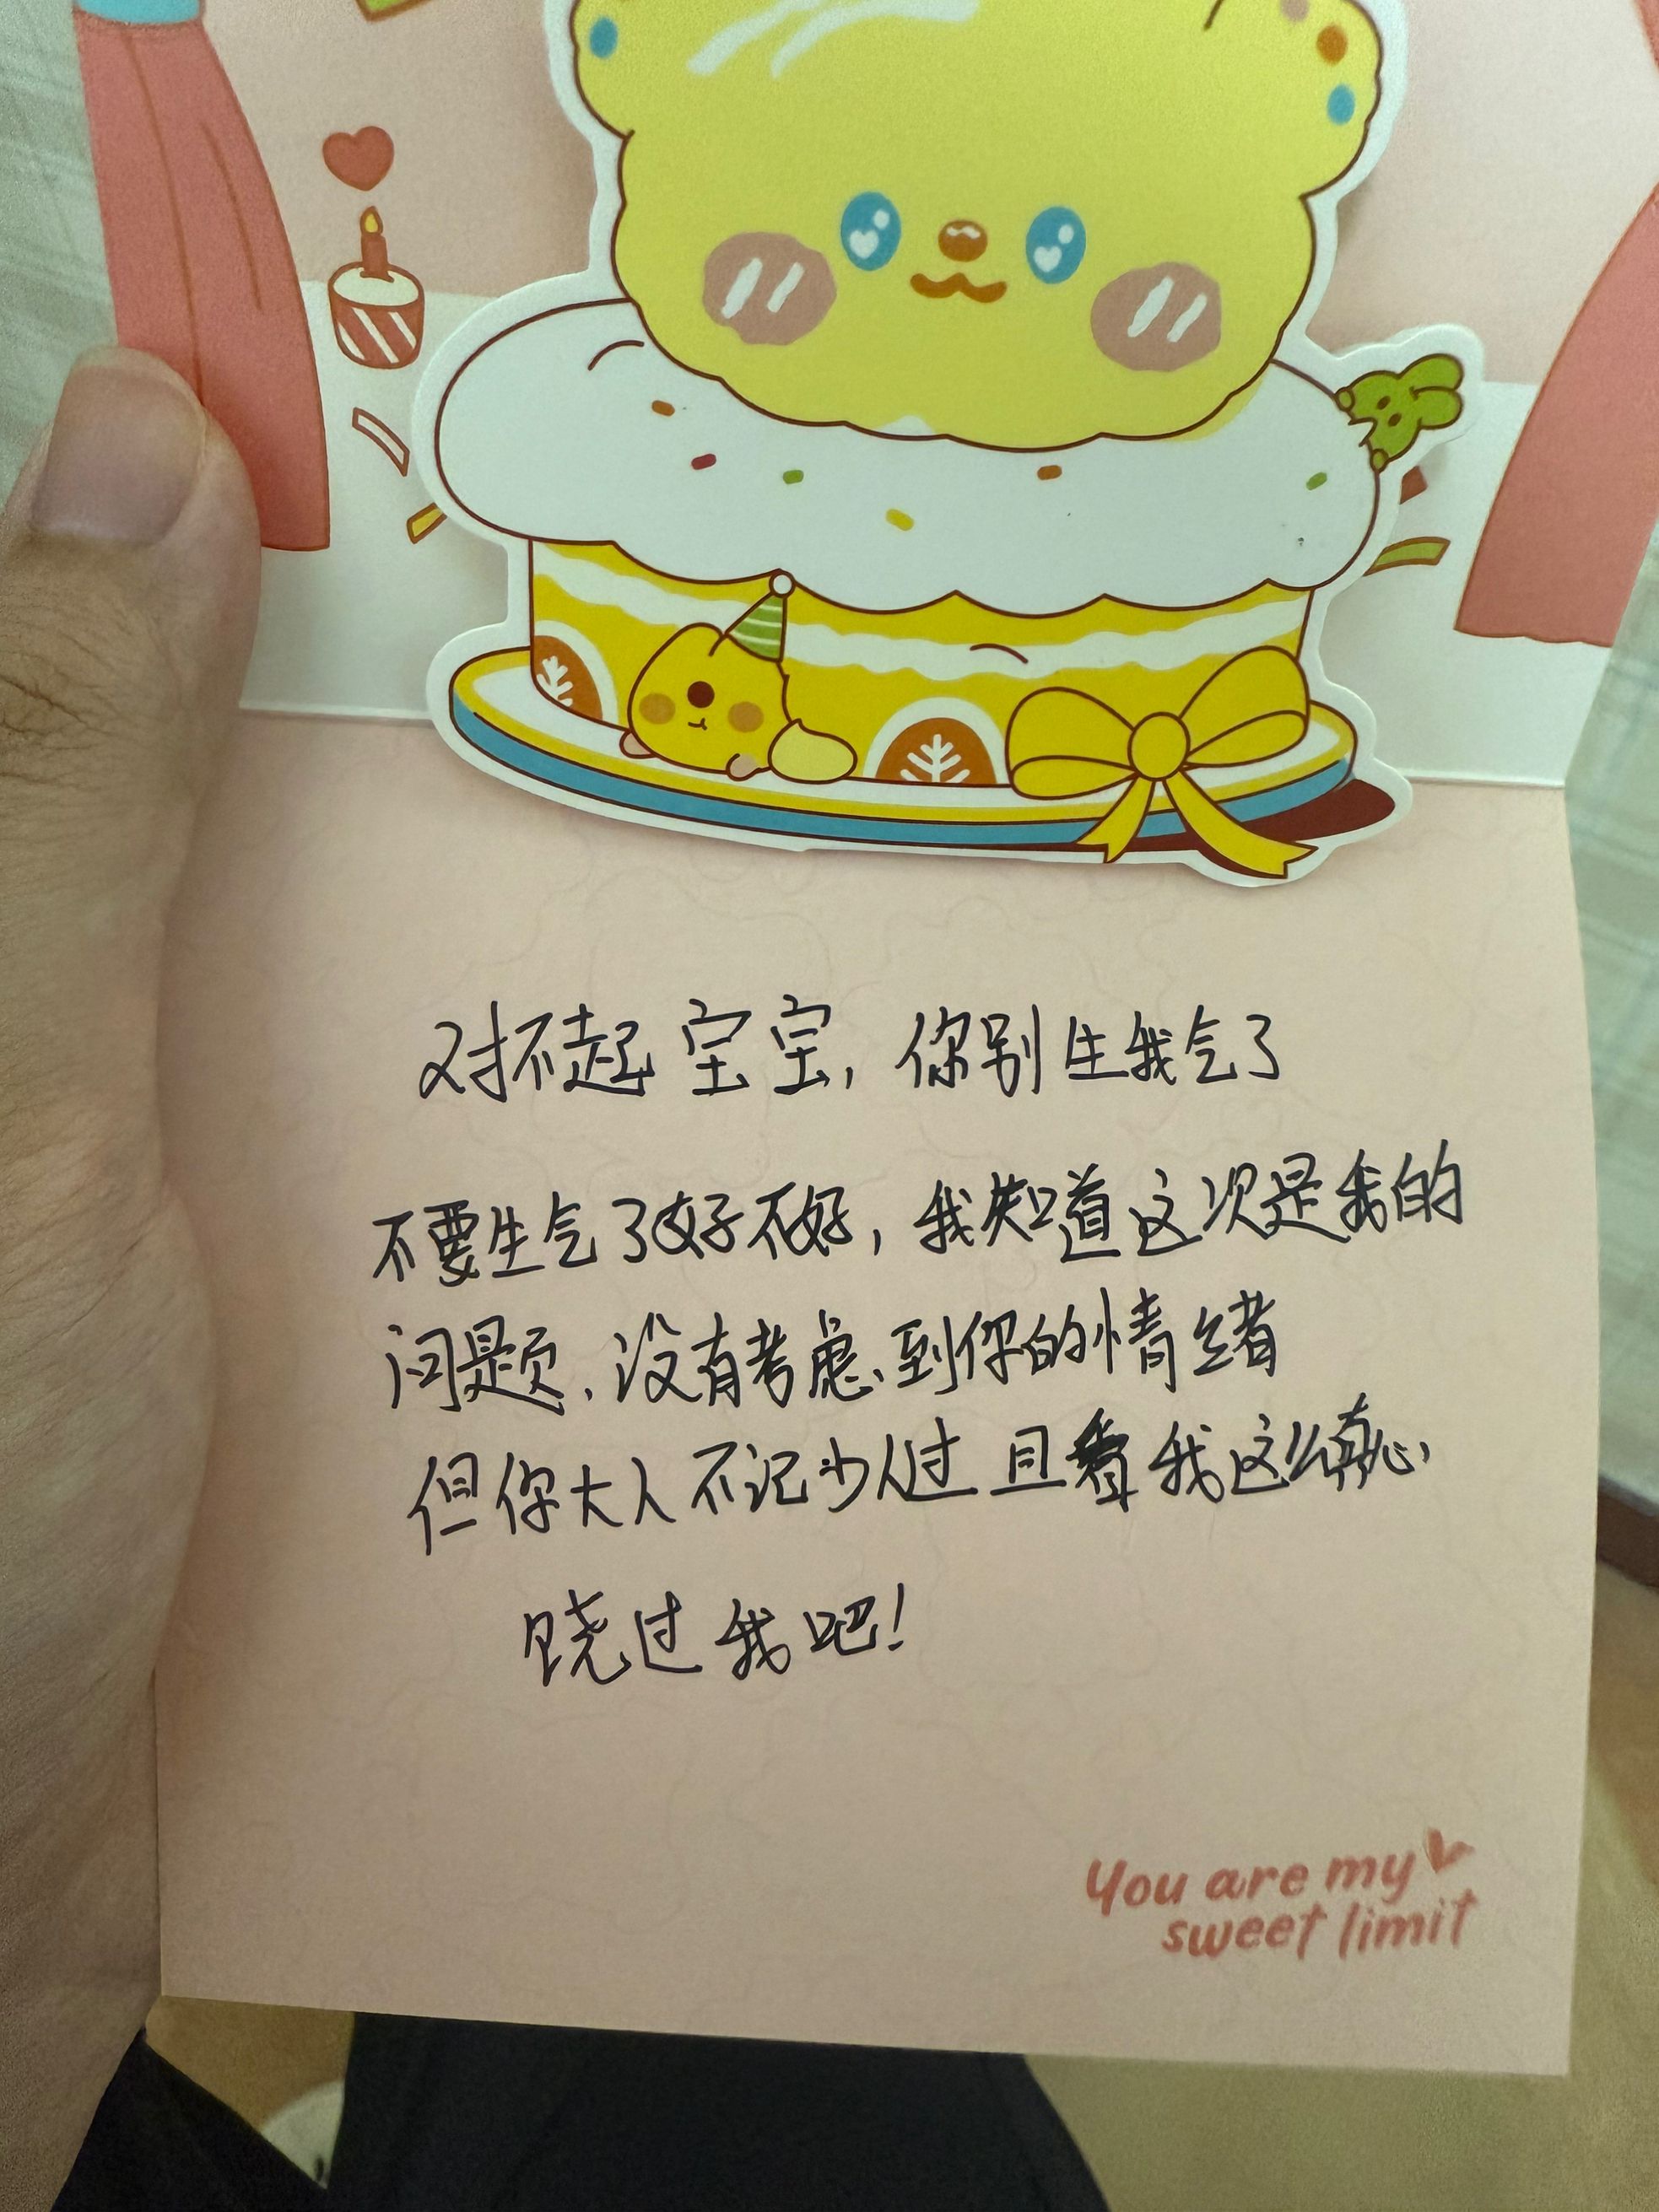 对不起宝宝，你别生我气了
不要生气了好不好，我知道这次是我的
问题，没有考虑到你的情绪
但你大人不记少人过且看我这么真心
饶过我吧！
You are my
sweet limit